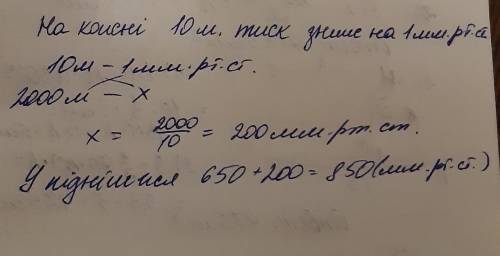 На кожні 10 м. тиск зниже на 1 мм.рт.ст
10м - 1мм.рт.ст.
2000м - x
x = 2000/10 = 200 мм.рт.ст.
У підніжжя 650 + 200 = 850(мм.рт.ст.)